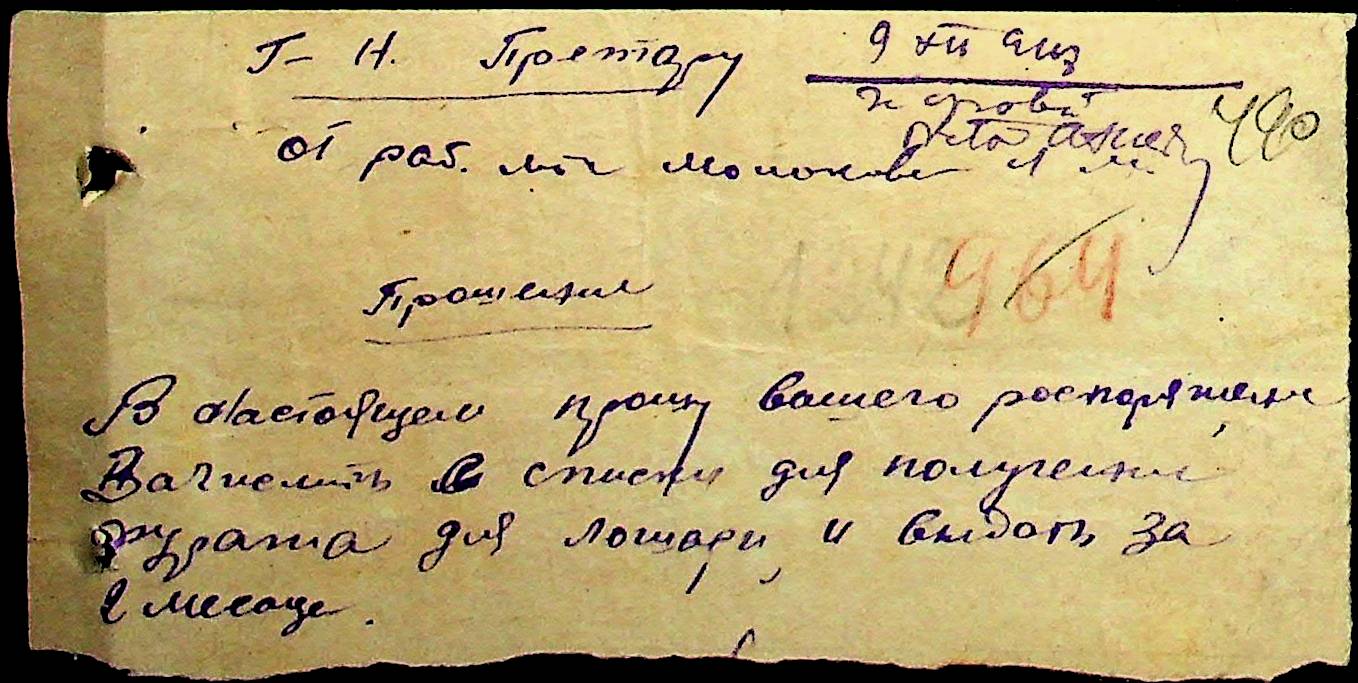 Г-н. Претару
9 XII 942
490
от раб. Молокове Л М.
964
Прошение
В настоящем прошу вашего роспоряжени
Зачислить в списки для получение
фуража для лошади, и выдать за
2 месеце.